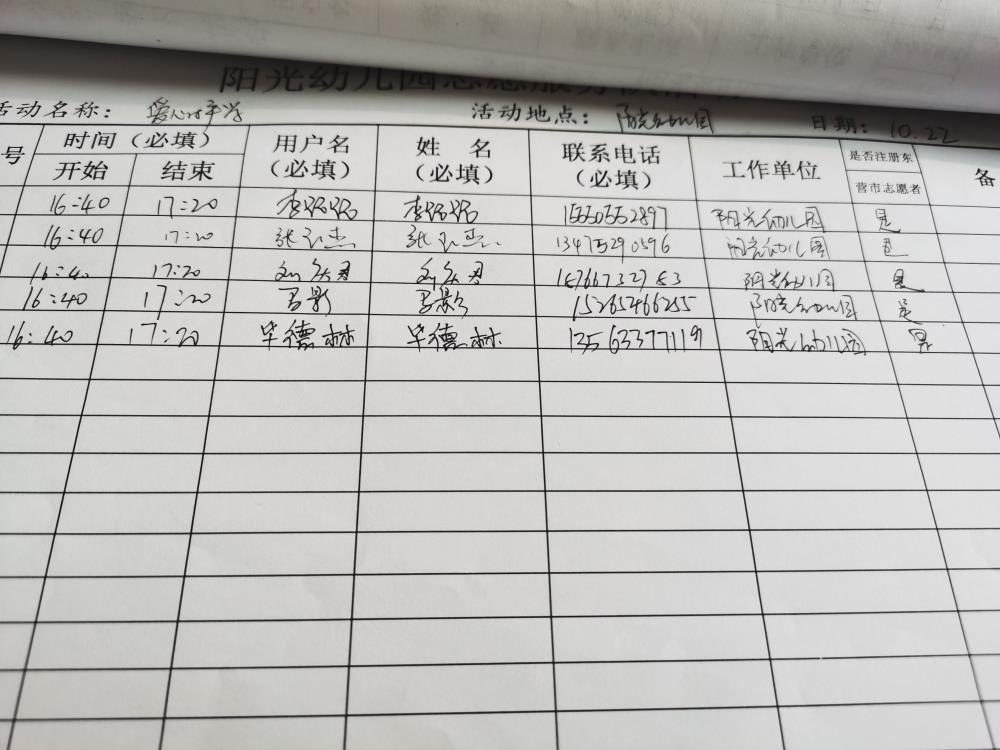 阳光幼儿园志愿服务
活动名称: 爱心助学 活动地点: 阳光幼儿园 日期: 10.22
号 时间(必填) 用户名(必填) 姓名(必填) 联系电话(必填) 工作单位 是否注册东营市志愿者 备
开始 结束
16:40 17:20 15550552897 阳光幼儿园 是
16:40 17:20 张 杰 张 杰 13475290596 阳光幼儿园 是
16:40 17:20 刘 君 刘 君 阳光幼儿园 是
16:40 17:20 马影 马影 15265466255 阳光幼儿园 是
16:40 17:20 毕德林 毕德林 13563377119 阳光幼儿园 是